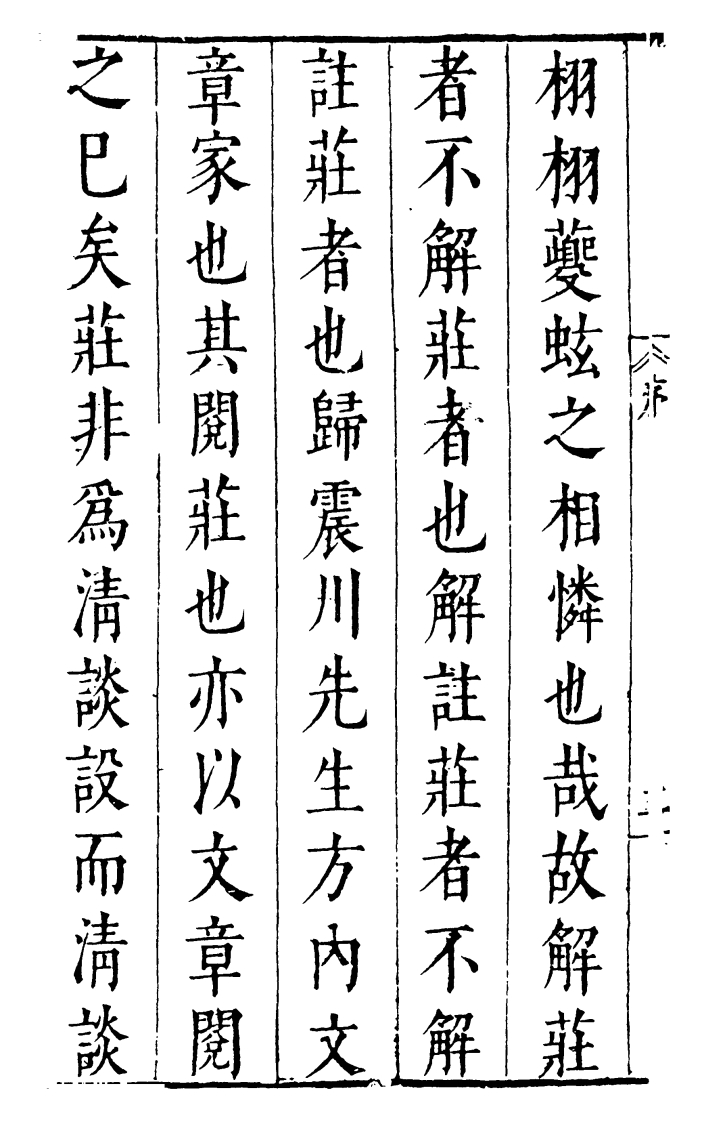 栩栩夔蚿之相憐也哉故解莊
者不解莊者也解註莊者不解
註莊者也歸震川先生方內文
章家也其閱莊也亦以文章閱
之巳矣莊非爲淸談設而淸談
序